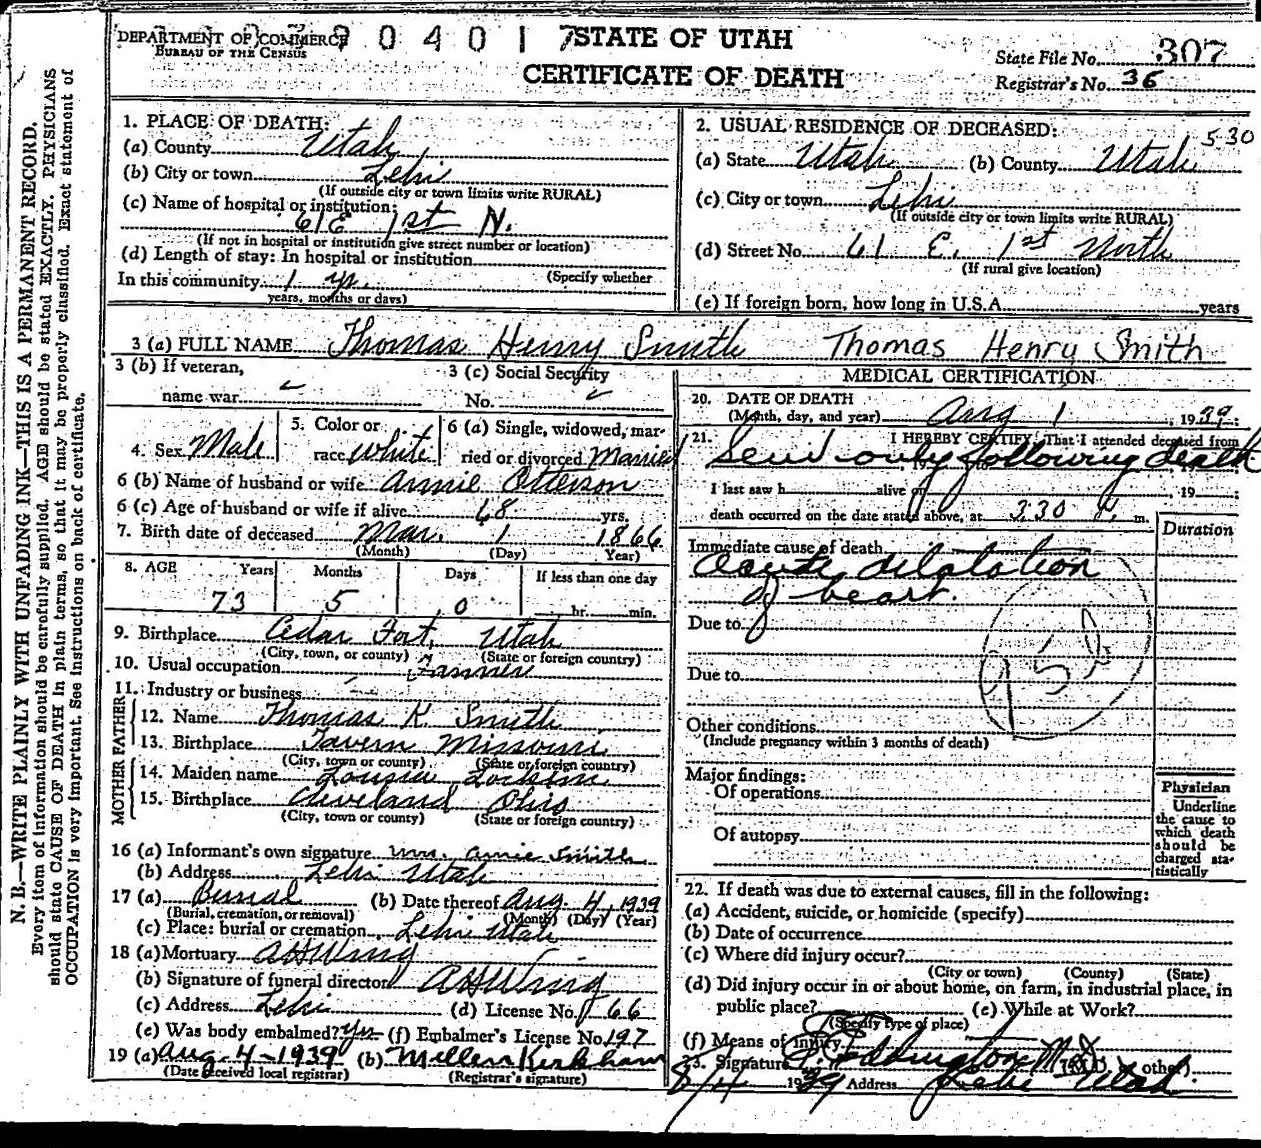 DEPARTMENT OF COMMERCE
BUREAU OF THE CENSUS
0 4 0 1 7
STATE OF UTAH
CERTIFICATE OF DEATH
State File No. 307
Registrar's No. 36
N. B.—WRITE PLAINLY WITH UNFADING INK—THIS IS A PERMANENT RECORD.
Every item of information should be carefully supplied. AGE should be stated EXACTLY. PHYSICIANS
should state CAUSE OF DEATH in plain terms, so that it may be properly classified. Exact statement of
OCCUPATION is very important. See instructions on back of certificate.
1. PLACE OF DEATH:
(a) County Utah
(b) City or town Lehi
(If outside city or town limits write RURAL)
(c) Name of hospital or institution:
61 E 1st N.
(If not in hospital or institution give street number or location)
(d) Length of stay: In hospital or institution
(Specify whether
In this community 1 yr.
years, months or days)
2. USUAL RESIDENCE OF DECEASED:
530
(a) State Utah (b) County Utah
(c) City or town Lehi
(If outside city or town limits write RURAL)
(d) Street No. 61 E. 1st North
(If rural give location)
(e) If foreign born, how long in U.S.A. years
3 (a) FULL NAME Thomas Henry Smith Thomas Henry Smith
3 (b) If veteran,
name war
3 (c) Social Security
No.
4. Sex Male
5. Color or
race white
6 (a) Single, widowed, mar-
ried or divorced Married
6 (b) Name of husband or wife Annie Otteson
6 (c) Age of husband or wife if alive 68 yrs.
7. Birth date of deceased Mar. 1 1866
(Month) (Day) Year)
8. AGE Years Months Days If less than one day
73 5 0 hr. min.
9. Birthplace Cedar Fort, Utah
(City, town, or county) (State or foreign country)
10. Usual occupation Farmer
11. Industry or business
FATHER
12. Name Thomas K. Smith
13. Birthplace Tavern Missouri
(City, town or county) (State or foreign country)
MOTHER
14. Maiden name
15. Birthplace Cleveland Ohio
(City, town or county) (State or foreign country)
16 (a) Informant's own signature Mrs. Annie Smith
(b) Address Lehi Utah
17 (a) Burial (b) Date thereof Aug. 4, 1939
(Burial, cremation, or removal) (Month) (Day) (Year)
(c) Place: burial or cremation Lehi Utah
18 (a) Mortuary A H Wing
(b) Signature of funeral director A H Wing
(c) Address Lehi (d) License No. 66
(e) Was body embalmed? Yes (f) Embalmer's License No. 197
19 (a) Aug-4-1939 (b) Millen Kirkham
(Date received local registrar) (Registrar's signature)
MEDICAL CERTIFICATION
20. DATE OF DEATH
(Month, day, and year) Aug 1 1939
21. I HEREBY CERTIFY, That I attended deceased from
Seen only following death
, 19
I last saw h alive on , 19
death occurred on the date stated above, at 3:30 P. m.
Duration
Immediate cause of death
Acute dilatation
of heart.
Due to
Due to
95b
Other conditions
(Include pregnancy within 3 months of death)
Major findings:
Of operations
Of autopsy
Physician
Underline
the cause to
which death
should be
charged sta-
tistically
22. If death was due to external causes, fill in the following:
(a) Accident, suicide, or homicide (specify)
(b) Date of occurrence
(c) Where did injury occur?
(City or town) (County) (State)
(d) Did injury occur in or about home, on farm, in industrial place, in
public place? (e) While at Work?
(Specify type of place)
(f) Means of injury
23. Signature Eddington M.D. (M.D. other)
8/4 1939 Address Lehi Utah